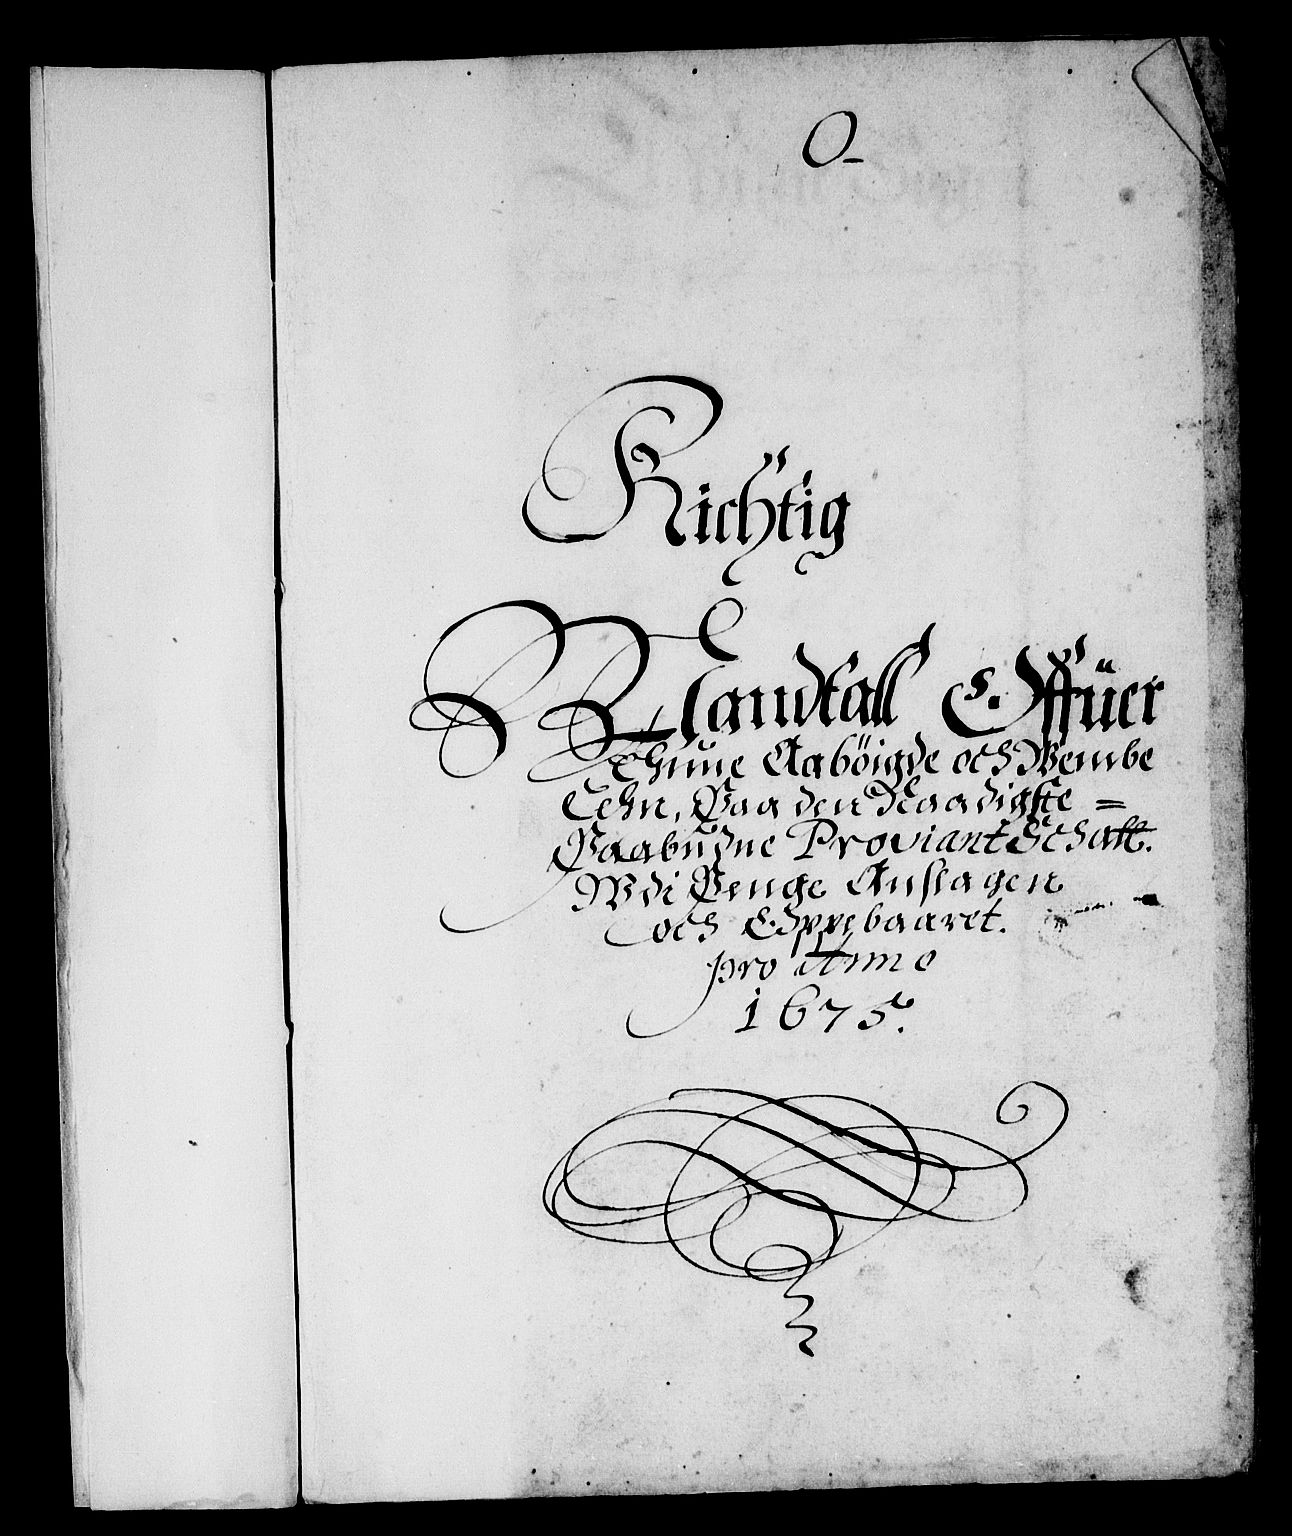 O
Richtig
Mandtall Offuer
Thune Aabøigde och Wembe
Lehn, Paa den Naadigste =
Paabudne Proviant Schatt.
Wdi Penge Anslagen
och Oppebaaret.
pro Anno
1675.